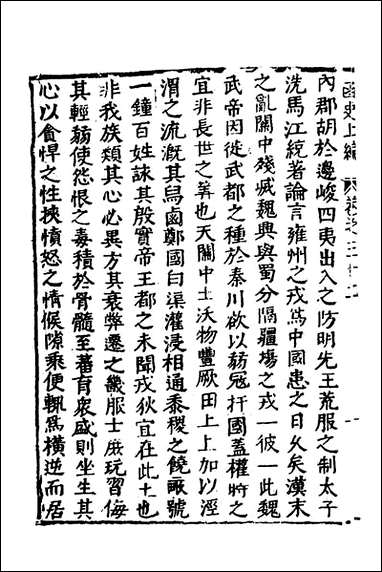 函史上編　卷之三十二
內郡胡於邊峻四夷出入之防明先王荒服之制太子
洗馬江統著論言雍州之戎爲中國患之日久矣漢末
之亂關中殘滅魏興與蜀分隔疆埸之戎一彼一此魏
武帝因徙武都之種於秦川欲以弱寇扞國蓋權時之
宜非長世之筭也夫關中土沃物豐厥田上上加以涇
渭之流溉其舄鹵鄭國白渠灌浸相通黍稷之饒畞號
一鐘百姓詠其殷實帝王都之未聞戎狄宜在此土也
非我族類其心必異方其衰弊遷之畿服士庶玩習侮
其輕弱使怨恨之毒積於骨髓至蕃育衆盛則坐生其
心以貪悍之性挾憤怒之情候隙乘便輒爲橫逆而居